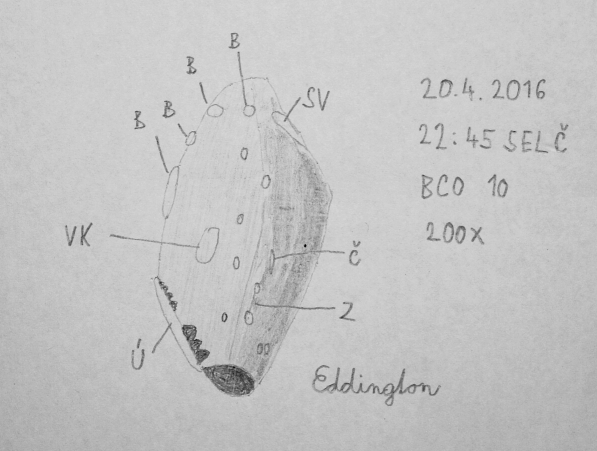 B
B
B
B
SV
VK
Č
Z
Ú
20.4.2016
22:45 SELČ
BCO 10
200x
Eddington